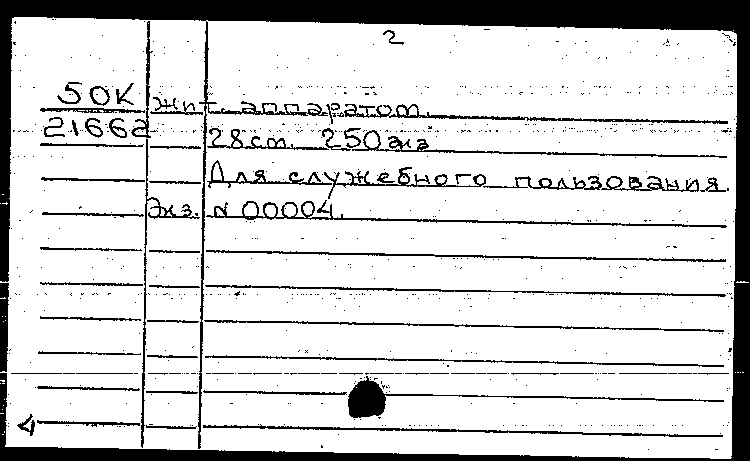 2
50К жит. аппаратом.
21662 28 ст. 250 экз
Для служебного пользования.
Экз. N 00004.
4